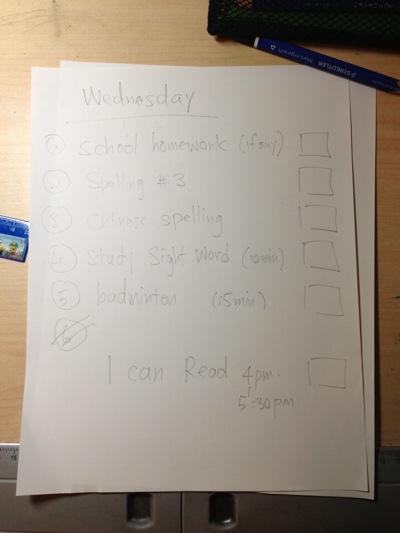 Wednasday
① School homework (if any)
② Spelling #3
③ Chinese spelling
④ Study Sight Word (10min)
⑤ badminton (15min)
⑥
I can Read 4pm.
5:30pm
STAEDTLER